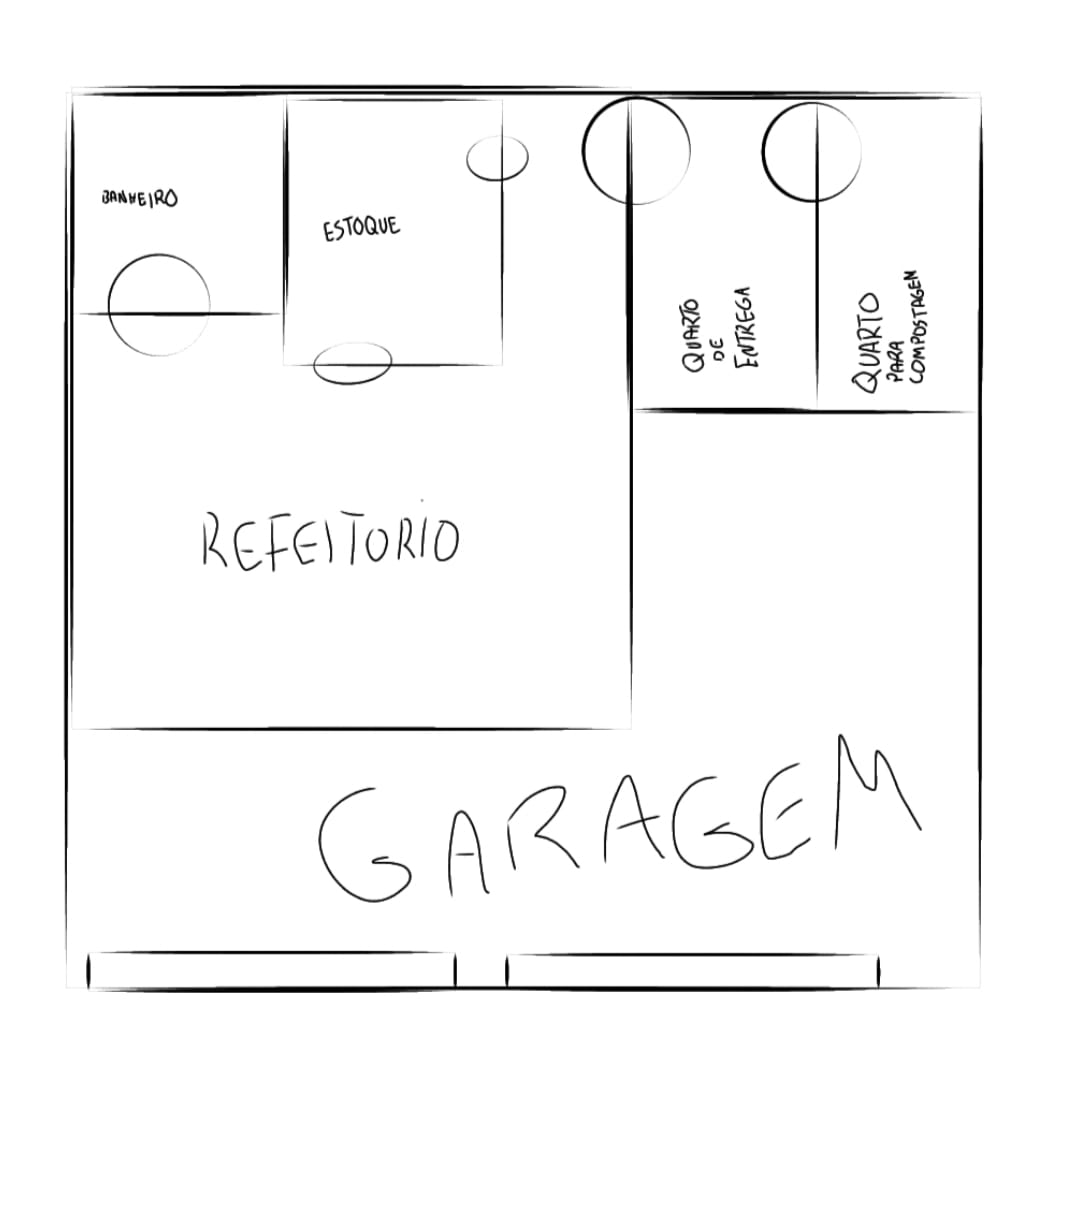 BANHEIRO
ESTOQUE
QUARTO
DE
ENTREGA
QUARTO
PARA
COMPOSTAGEN
REFEITORIO
GARAGEM